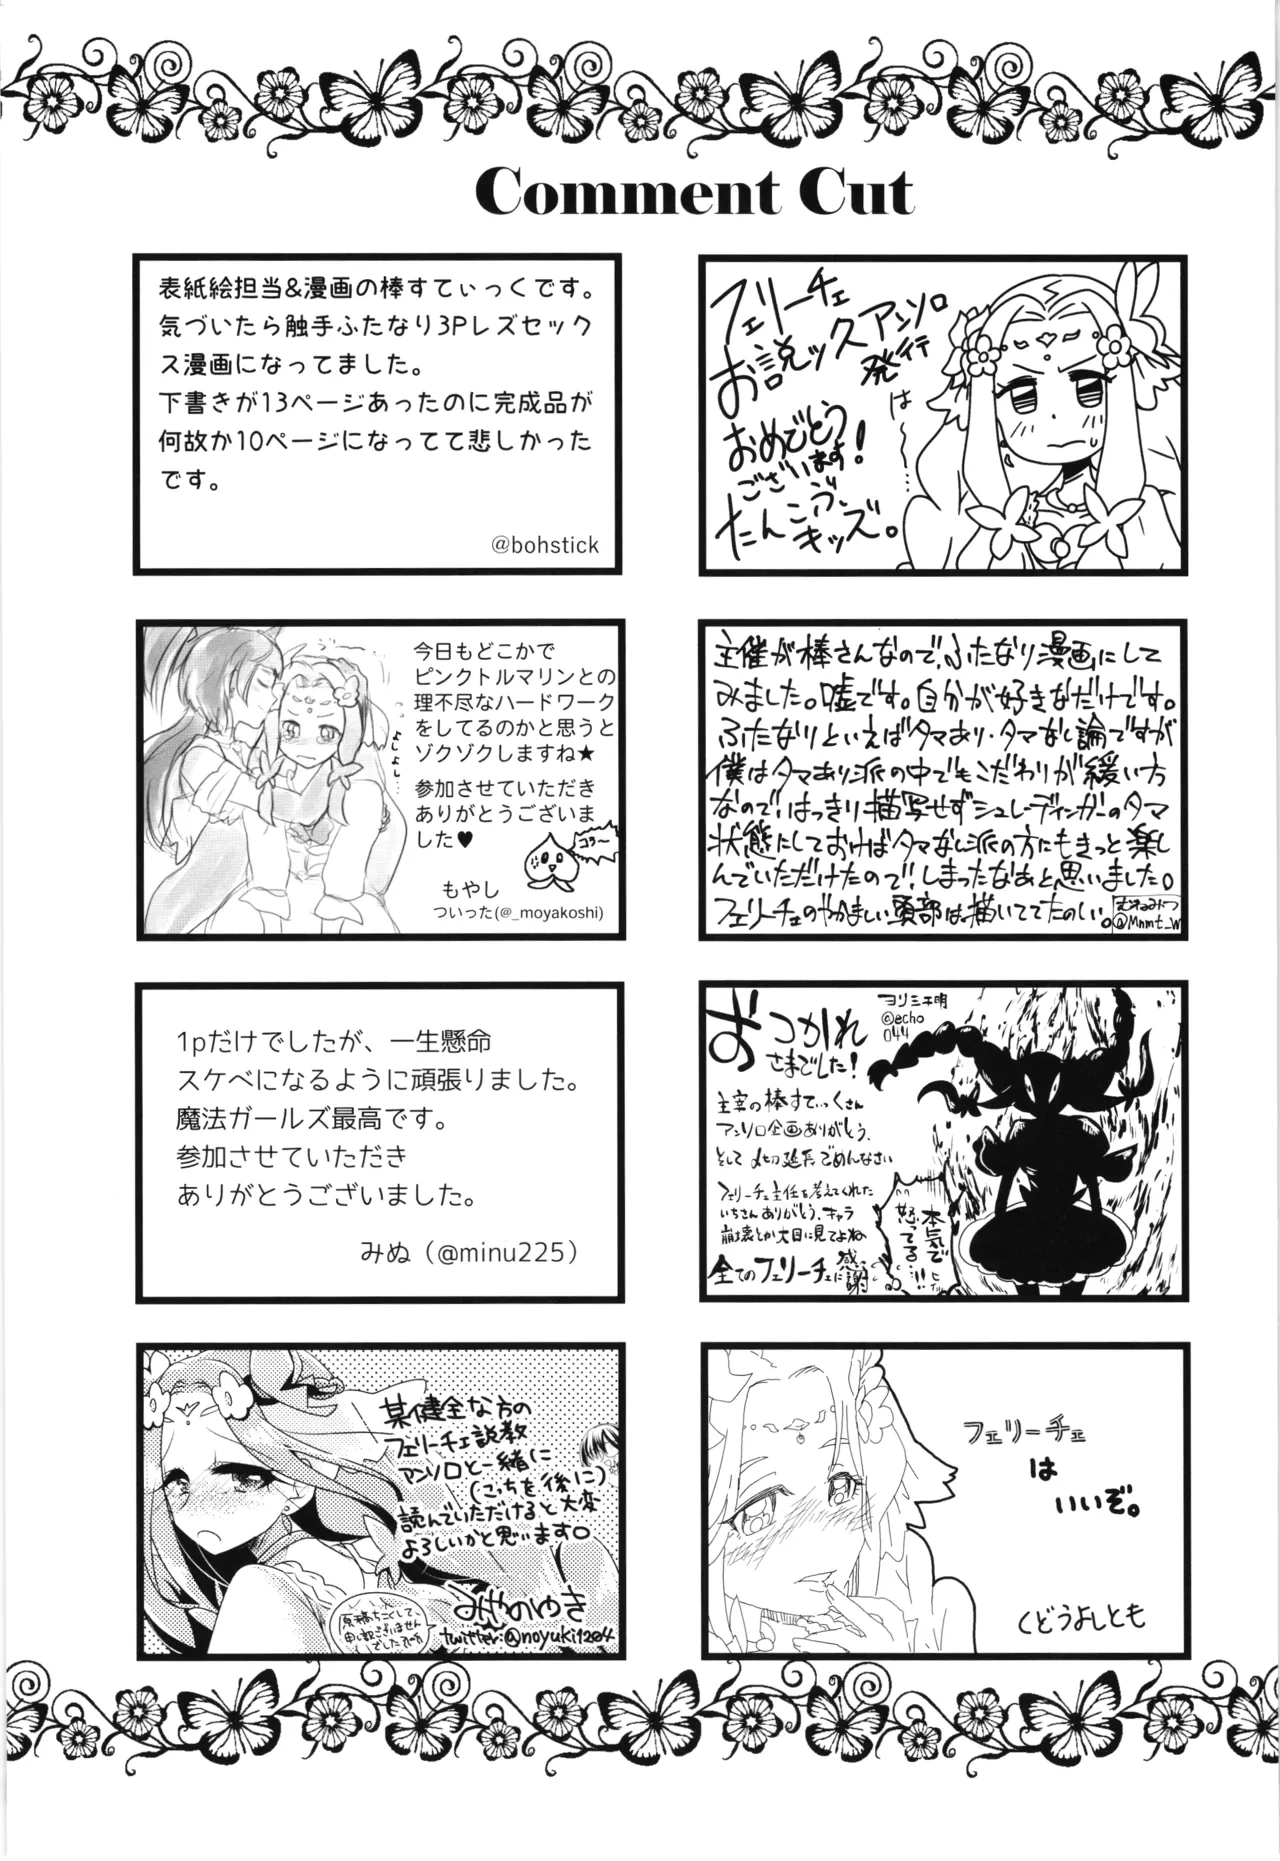 Comment Cut
表紙絵担当&漫画の棒すてぃっくです。
気づいたら触手ふたなり3Pレズセック
ス漫画になってました。
下書きが13ページあったのに完成品が
何故か10ページになってて悲しかった
です。
@bohstick
フェリーチェ
お説ックスアンソロ
発行
おめでとう
ございます!
たんこぶ
キッズ。
は〜〜…
今日もどこかで
ピンクトルマリンとの
理不尽なハードワーク
をしてるのかと思うと
ゾクゾクしますね★
参加させていただき
ありがとうございま
した♥
よしよし…
コラ〜
もやし
ついった(@_moyakoshi)
主催が棒さんなので、ふたなり漫画にして
みました。嘘です。自分が好きなだけです。
ふたなりといえばタマあり・タマなし論ですが
僕はタマあり派の中でもこだわりが緩い方
なので、はっきり描写せずシュレーディンガーのタマ
状態にしておけばタマなし派の方にもきっと楽し
んでいただけたので!しまったなあと思いました。
フェリーチェのやかましい頭部は描いててたのしい。
むねみつ
@Mnmt_W
1pだけでしたが、一生懸命
スケベになるように頑張りました。
魔法ガールズ最高です。
参加させていただき
ありがとうございました。
みぬ（@minu225）
おつかれ
さまでした!
ヨリミチ明
@echo
044
主宰の棒すてぃっくさん
アンソロ企画ありがとう、
そして〆切延長ごめんなさい
フェリーチェ主任を考えてくれた
いちさんありがとう、キャラ
崩壊とか大目に見てよね
全てのフェリーチェに感謝
本気で
怒ってる…!!
某健全な方の
フェリーチェ説教
アンソロと一緒に
(こっちを後に)
読んでいただけると大変
よろしいかと思います。
みやのゆき
twitter:@noyuki1204
原稿ちこくして、
申し訳ございません
でした
フェリーチェ
は
いいぞ。
くどうよしとも